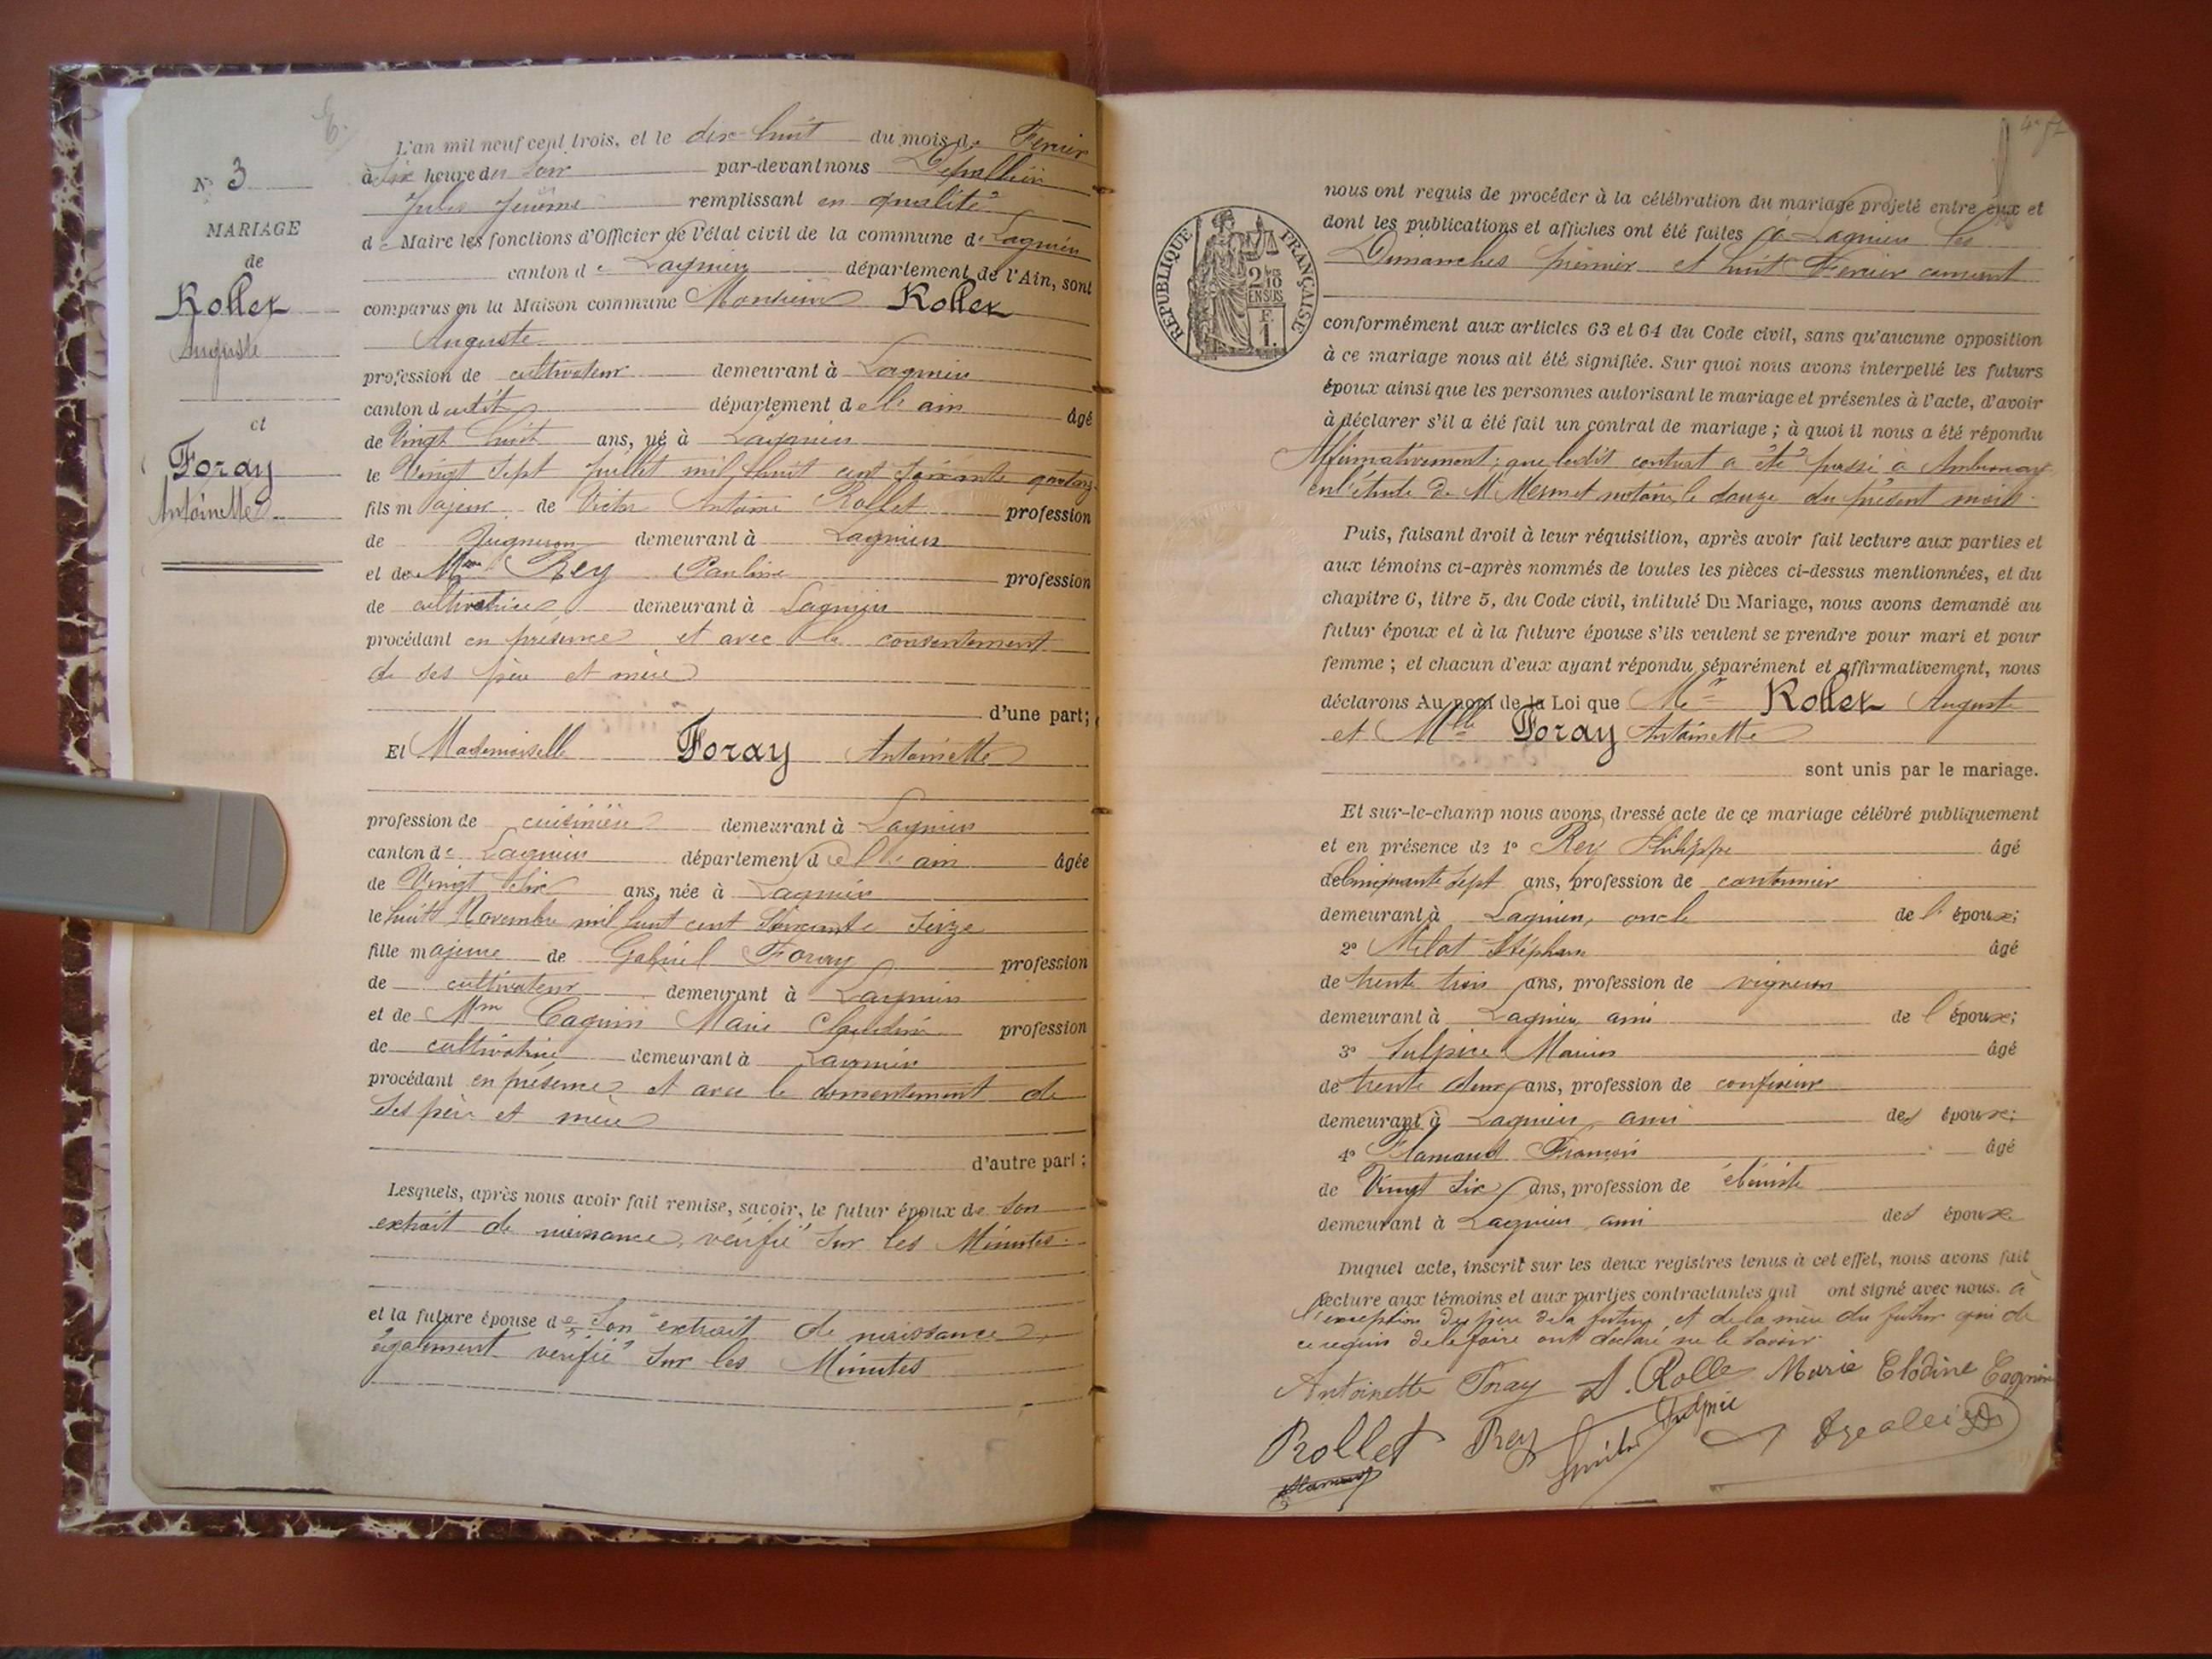 N° 3
MARIAGE
de
Rollet
Auguste
et
Foray
Antoinette
L'an mil neuf cent trois, et le dix-huit du mois de Fevrier
à Six heure du Soir par-devant nous
Jules Jérôme remplissant en qualité
de Maire les fonctions d'Officier de l'état civil de la commune de Lagnieu
canton de Lagnieu département de l'Ain, sont
comparus en la Maison commune Monsieur Rollet
Auguste
profession de cultivateur demeurant à Lagnieu
canton dudit département de l'ain âgé
de Vingt huit ans, né à Lagnieu
le Vingt Sept Juillet mil huit cent soixante quatorze
fils majeur de Victor Antoine Rollet profession
de Vigneron demeurant à Lagnieu
et de Mme Rey Pauline profession
de cultivatrice demeurant à Lagnieu
procédant en présence et avec le consentement
de ses père et mère
d'une part;
Et Mademoiselle Foray Antoinette
profession de cuisinière demeurant à Lagnieu
canton de Lagnieu département de l'ain âgée
de Vingt Six ans, née à Lagnieu
le huit Novembre mil huit cent Soixante Seize
fille majeure de Gabriel Foray profession
de cultivateur demeurant à Lagnieu
et de Mme Cagnin Marie Claudine profession
de cultivatrice demeurant à Lagnieu
procédant en présence et avec le consentement de
Ses père et mère
d'autre part;
Lesquels, après nous avoir fait remise, savoir, le futur époux de Son
extrait de naissance, vérifié Sur les Minutes.
et la future épouse de Son extrait de naissance
également vérifié Sur les Minutes
nous ont requis de procéder à la célébration du mariage projeté entre eux et
dont les publications et affiches ont été faites à Lagnieu les
Dimanches premier et huit Fevrier courant
RÉPUBLIQUE FRANÇAISE
2/10 EN SUS
F. 1.
conformément aux articles 63 et 64 du Code civil, sans qu'aucune opposition
à ce mariage nous ait été signifiée. Sur quoi nous avons interpellé les futurs
époux ainsi que les personnes autorisant le mariage et présentes à l'acte, d'avoir
à déclarer s'il a été fait un contrat de mariage; à quoi il nous a été répondu
Affirmativement; que ledit contrat a été passé à Ambronay
en l'étude de Me Mermet notaire, le douze du présent mois.
Puis, faisant droit à leur réquisition, après avoir fait lecture aux parties et
aux témoins ci-après nommés de toutes les pièces ci-dessus mentionnées, et du
chapitre 6, titre 5, du Code civil, intitulé Du Mariage, nous avons demandé au
futur époux et à la future épouse s'ils veulent se prendre pour mari et pour
femme; et chacun d'eux ayant répondu séparément et affirmativement, nous
déclarons Au nom de la Loi que Mr Rollet Auguste
et Mlle Foray Antoinette
sont unis par le mariage.
Et sur-le-champ nous avons dressé acte de ce mariage célébré publiquement
et en présence de 1° Rey Philippe âgé
de Cinquante Sept ans, profession de cantonnier
demeurant à Lagnieu, oncle de l'époux;
2° Milat Stéphane âgé
de trente trois ans, profession de vigneron
demeurant à Lagnieu ami de l'époux;
3° Sulpice Marius âgé
de trente deux ans, profession de confiseur
demeurant à Lagnieu ami des époux;
4° Flamand François âgé
de Vingt Six ans, profession de ébéniste
demeurant à Lagnieu ami des époux
Duquel acte, inscrit sur les deux registres tenus à cet effet, nous avons fait
lecture aux témoins et aux parties contractantes qui ont signé avec nous. à
l'exception du père de la future, et de la mère du futur qui de
ce requis de le faire ont déclaré ne le Savoir.
Antoinette Foray A. Rolle Marie Clodine Cagnin
Rollet Rey Sulpice